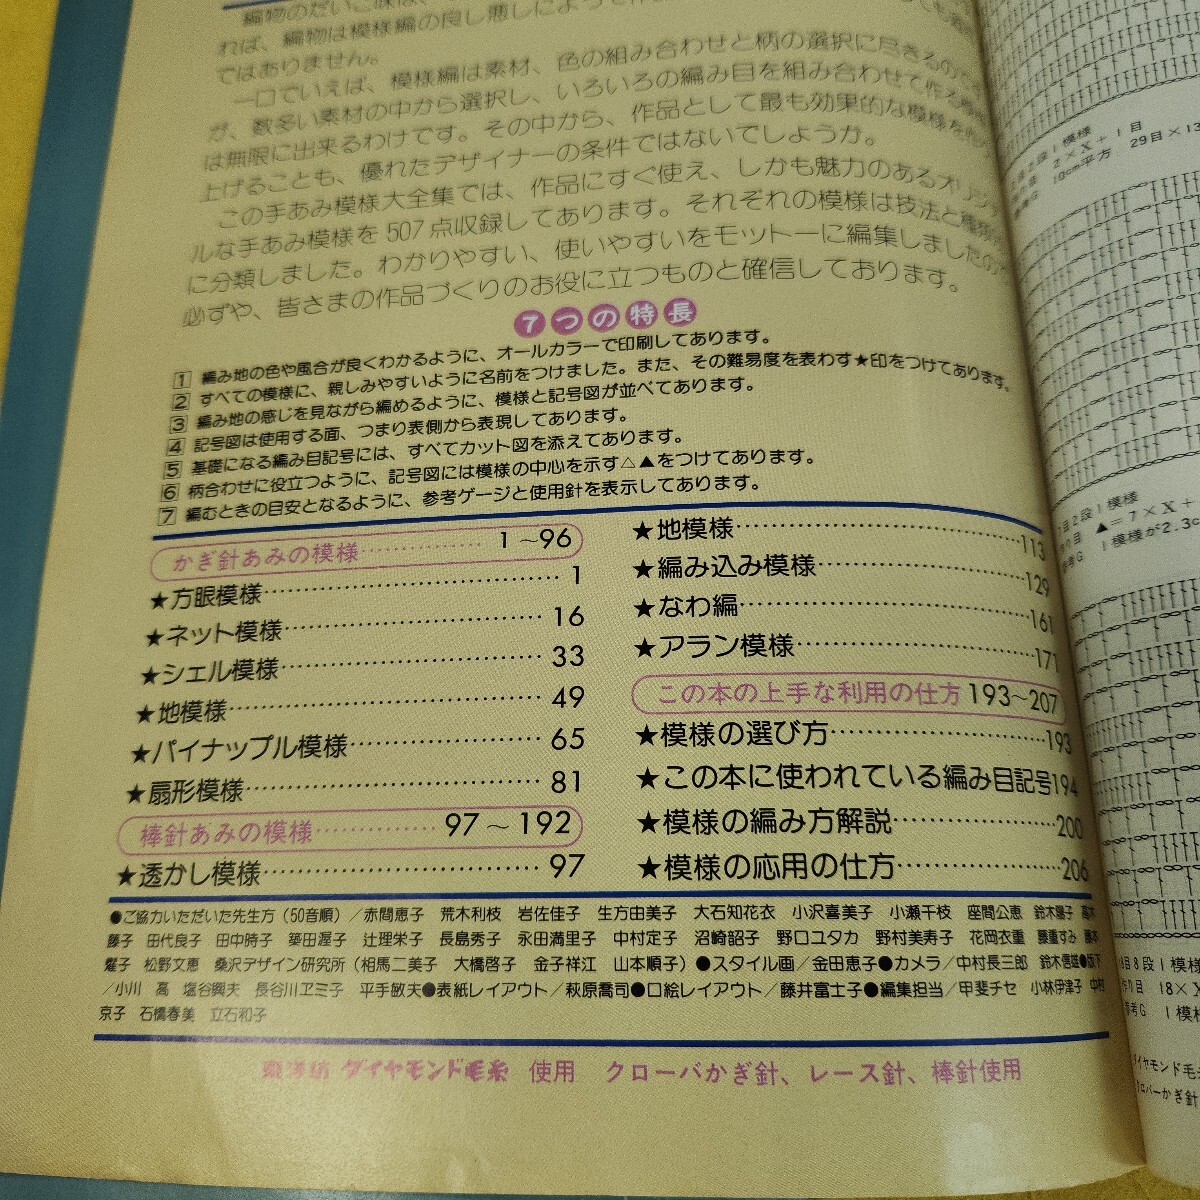 編物のだいご味は、
れば、編物は模様編の良し悪しによって作
ではありません。
一口でいえば、模様編は素材、色の組み合わせと柄の選択に尽きるので
が、数多い素材の中から選択し、いろいろの編み目を組み合わせて作る
は無限に出来るわけです。その中から、作品として最も効果的な模様を
上げることも、優れたデザイナーの条件ではないでしょうか。
この手あみ模様大全集では、作品にすぐ使え、しかも魅力のあるオリジナ
ルな手あみ模様を507点収録してあります。それぞれの模様は技法と種類
に分類しました。わかりやすい、使いやすいをモットーに編集しましたので
必ずや、皆さまの作品づくりのお役に立つものと確信しております。
7つの特長
1 編み地の色や風合が良くわかるように、オールカラーで印刷してあります。
2 すべての模様に、親しみやすいように名前をつけました。また、その難易度を表わす★印をつけてあります。
3 編み地の感じを見ながら編めるように、模様と記号図が並べてあります。
4 記号図は使用する面、つまり表側から表現してあります。
5 基礎になる編み目記号には、すべてカット図を添えてあります。
6 柄合わせに役立つように、記号図には模様の中心を示す△▲をつけてあります。
7 編むときの目安となるように、参考ゲージと使用針を表示してあります。
かぎ針あみの模様…………… 1～96
★方眼模様…………………… 1
★ネット模様…………………… 16
★シェル模様…………………… 33
★地模様…………………… 49
★パイナップル模様…………… 65
★扇形模様…………………… 81
棒針あみの模様………… 97～192
★透かし模様…………………… 97
★地模様…………………… 113
★編み込み模様…………… 129
★なわ編…………………… 161
★アラン模様…………… 171
この本の上手な利用の仕方 193～207
★模様の選び方…………… 193
★この本に使われている編み目記号194
★模様の編み方解説………… 200
★模様の応用の仕方………… 206
●ご協力いただいた先生方（50音順）／赤間恵子 荒木利枝 岩佐佳子 生方由美子 大石知花衣 小沢喜美子 小瀬千枝 座間公恵 鈴木陽子 高木
藤子 田代良子 田中時子 築田渥子 辻理栄子 長島秀子 永田満里子 中村定子 沼崎韶子 野口ユタカ 野村美寿子 花岡衣重 藤重すみ 藤本
燿子 松野文恵 桑沢デザイン研究所（相馬二美子 大橋啓子 金子祥江 山本順子）●スタイル画／金田恵子●カメラ／中村長三郎 鈴木信雄●版下
／小川 高 塩谷興夫 長谷川ヱミ子 平手敏夫●表紙レイアウト／萩原喬司●口絵レイアウト／藤井富士子●編集担当／甲斐チセ 小林伊津子 中村
京子 石橋春美 立石和子
ダイヤモンド毛糸 使用 クローバかぎ針、レース針、棒針使用
2段1模様
2×X＋1目
10cm平方 29目×13
2段1模様
▲＝7×X＋
1模様が2.3c
8段1模様
18×X
参考G 1模様
ダイヤモンド毛
クローバーかぎ針